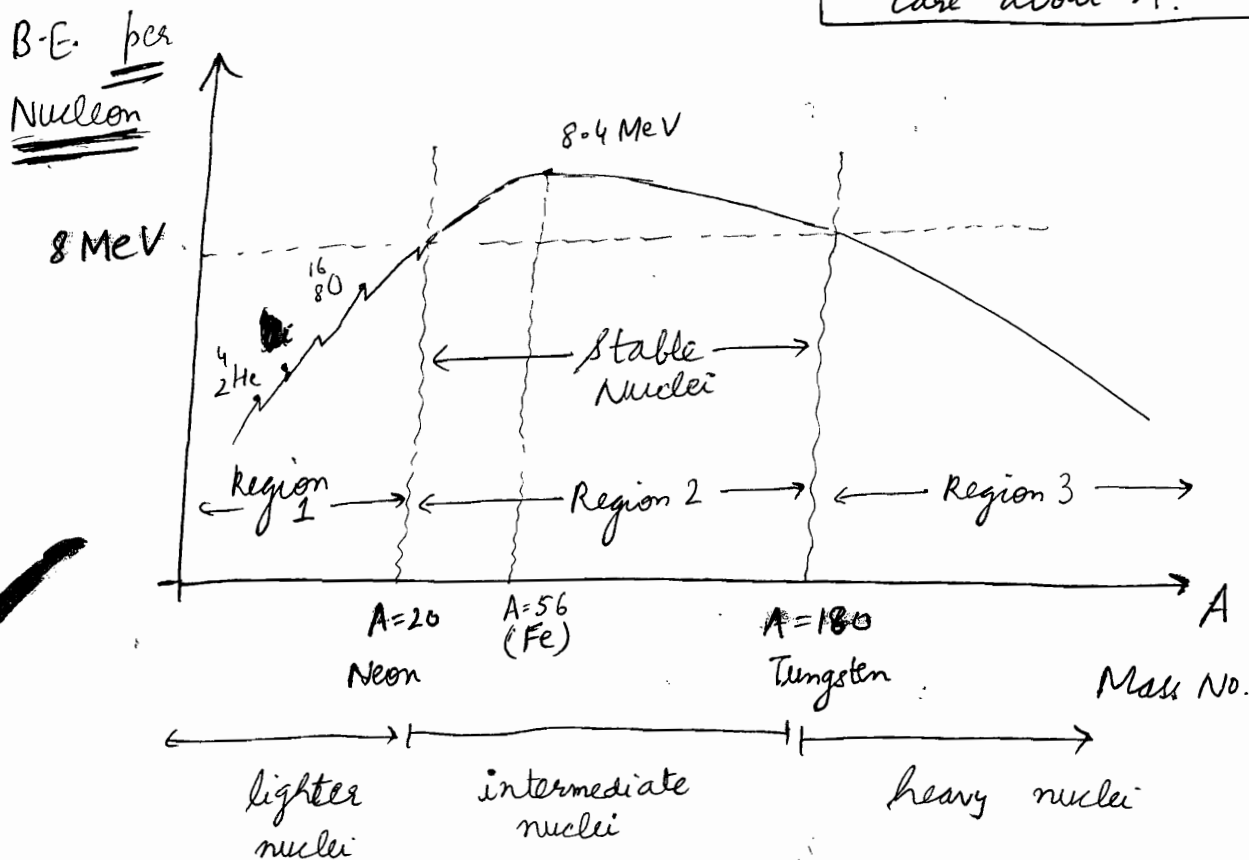 care about A.
B.E. per
Nucleon
8.4 MeV
8 MeV
16
8O
4
2He
Stable
Nuclei
Region
1
Region 2
Region 3
A=20
A=56
(Fe)
A=180
A
Neon
Tungsten
Mass No.
lighter
nuclei
intermediate
nuclei
heavy nuclei